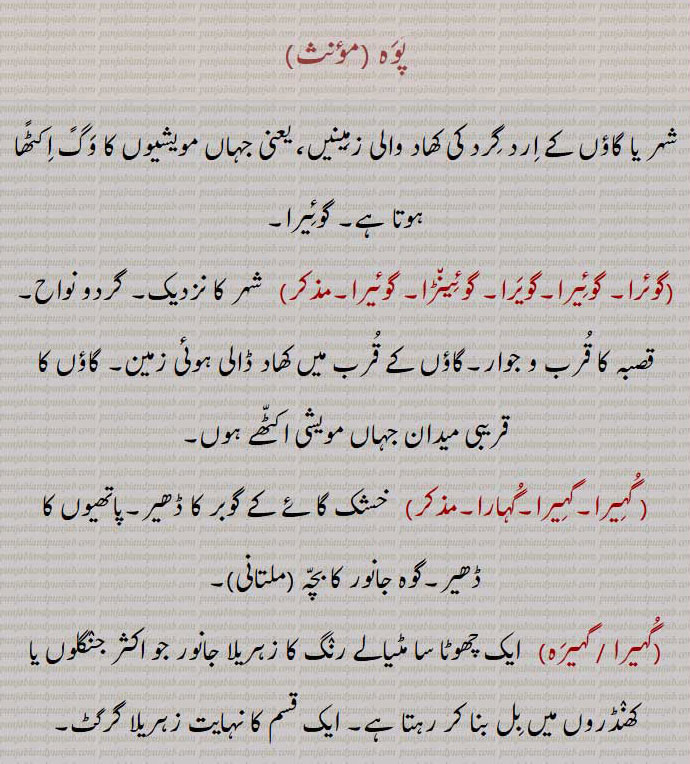 پَوَہ (مؤنث)
شہر یا گاؤں کے اِرد گِرد کی کھاد والی زمینیں، یعنی جہاں مویشیوں کا وَگّ اِکٹھّا
ہوتا ہے۔ گوئیرا۔
(گوئرا۔ گوئیرا۔ گویَرا۔ گوئینڑا۔ گوئیرا۔ مذکر) شہر کا نزدیک۔ گردو نواح۔
قصبہ کا قُرب و جوار۔ گاؤں کے قُرب میں کھاد ڈالی ہوئی زمین۔ گاؤں کا
قریبی میدان جہاں مویشی اکٹھّے ہوں۔
(گُہِیرا۔ گہِیرا۔ گُہارا۔ مذکر) خشک گائے کے گوبر کا ڈھیر۔ پاتھیوں کا
ڈھیر۔ گوہ جانور کا بچّہ (ملتانی)۔
(گُہیرا / گہیرَہ) ایک چھوٹا سا مٹیالے رنگ کا زہریلا جانور جو اکثر جنگلوں یا
کھنڈروں میں بِل بنا کر رہتا ہے۔ ایک قسم کا نہایت زہریلا گرگٹ۔